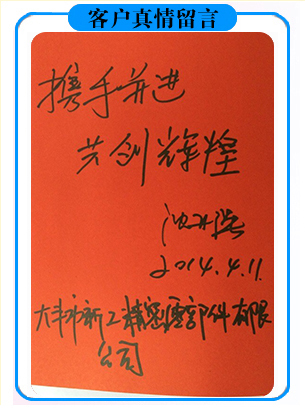 客户真情留言
携手并进
共创辉煌
2014.4.11.
大丰市新工精密零部件有限
公司